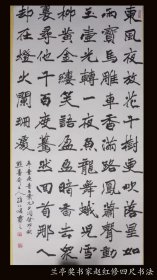 東風夜放花千樹更吹落星如
雨寶馬雕車香滿路鳳簫聲動
玉壺光轉一夜魚龍舞蛾兒雪
柳黃金縷笑語盈盈暗香去衆
裏尋他千百度驀然回首那人
却在燈火闌珊處
兰亭奖书家赵红修四尺书法